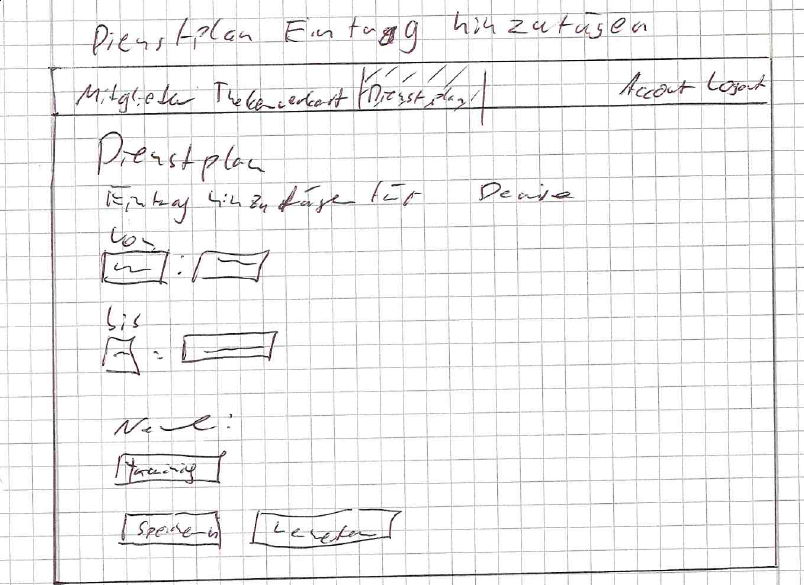 Dienstplan Eintrag hinzufügen
Mitglieder Thekenverkauf Dienstplan Account Logout
Dienstplan
Eintrag hinzufügen für Denise
Von
:
bis
:
Name:
Training
Speichern